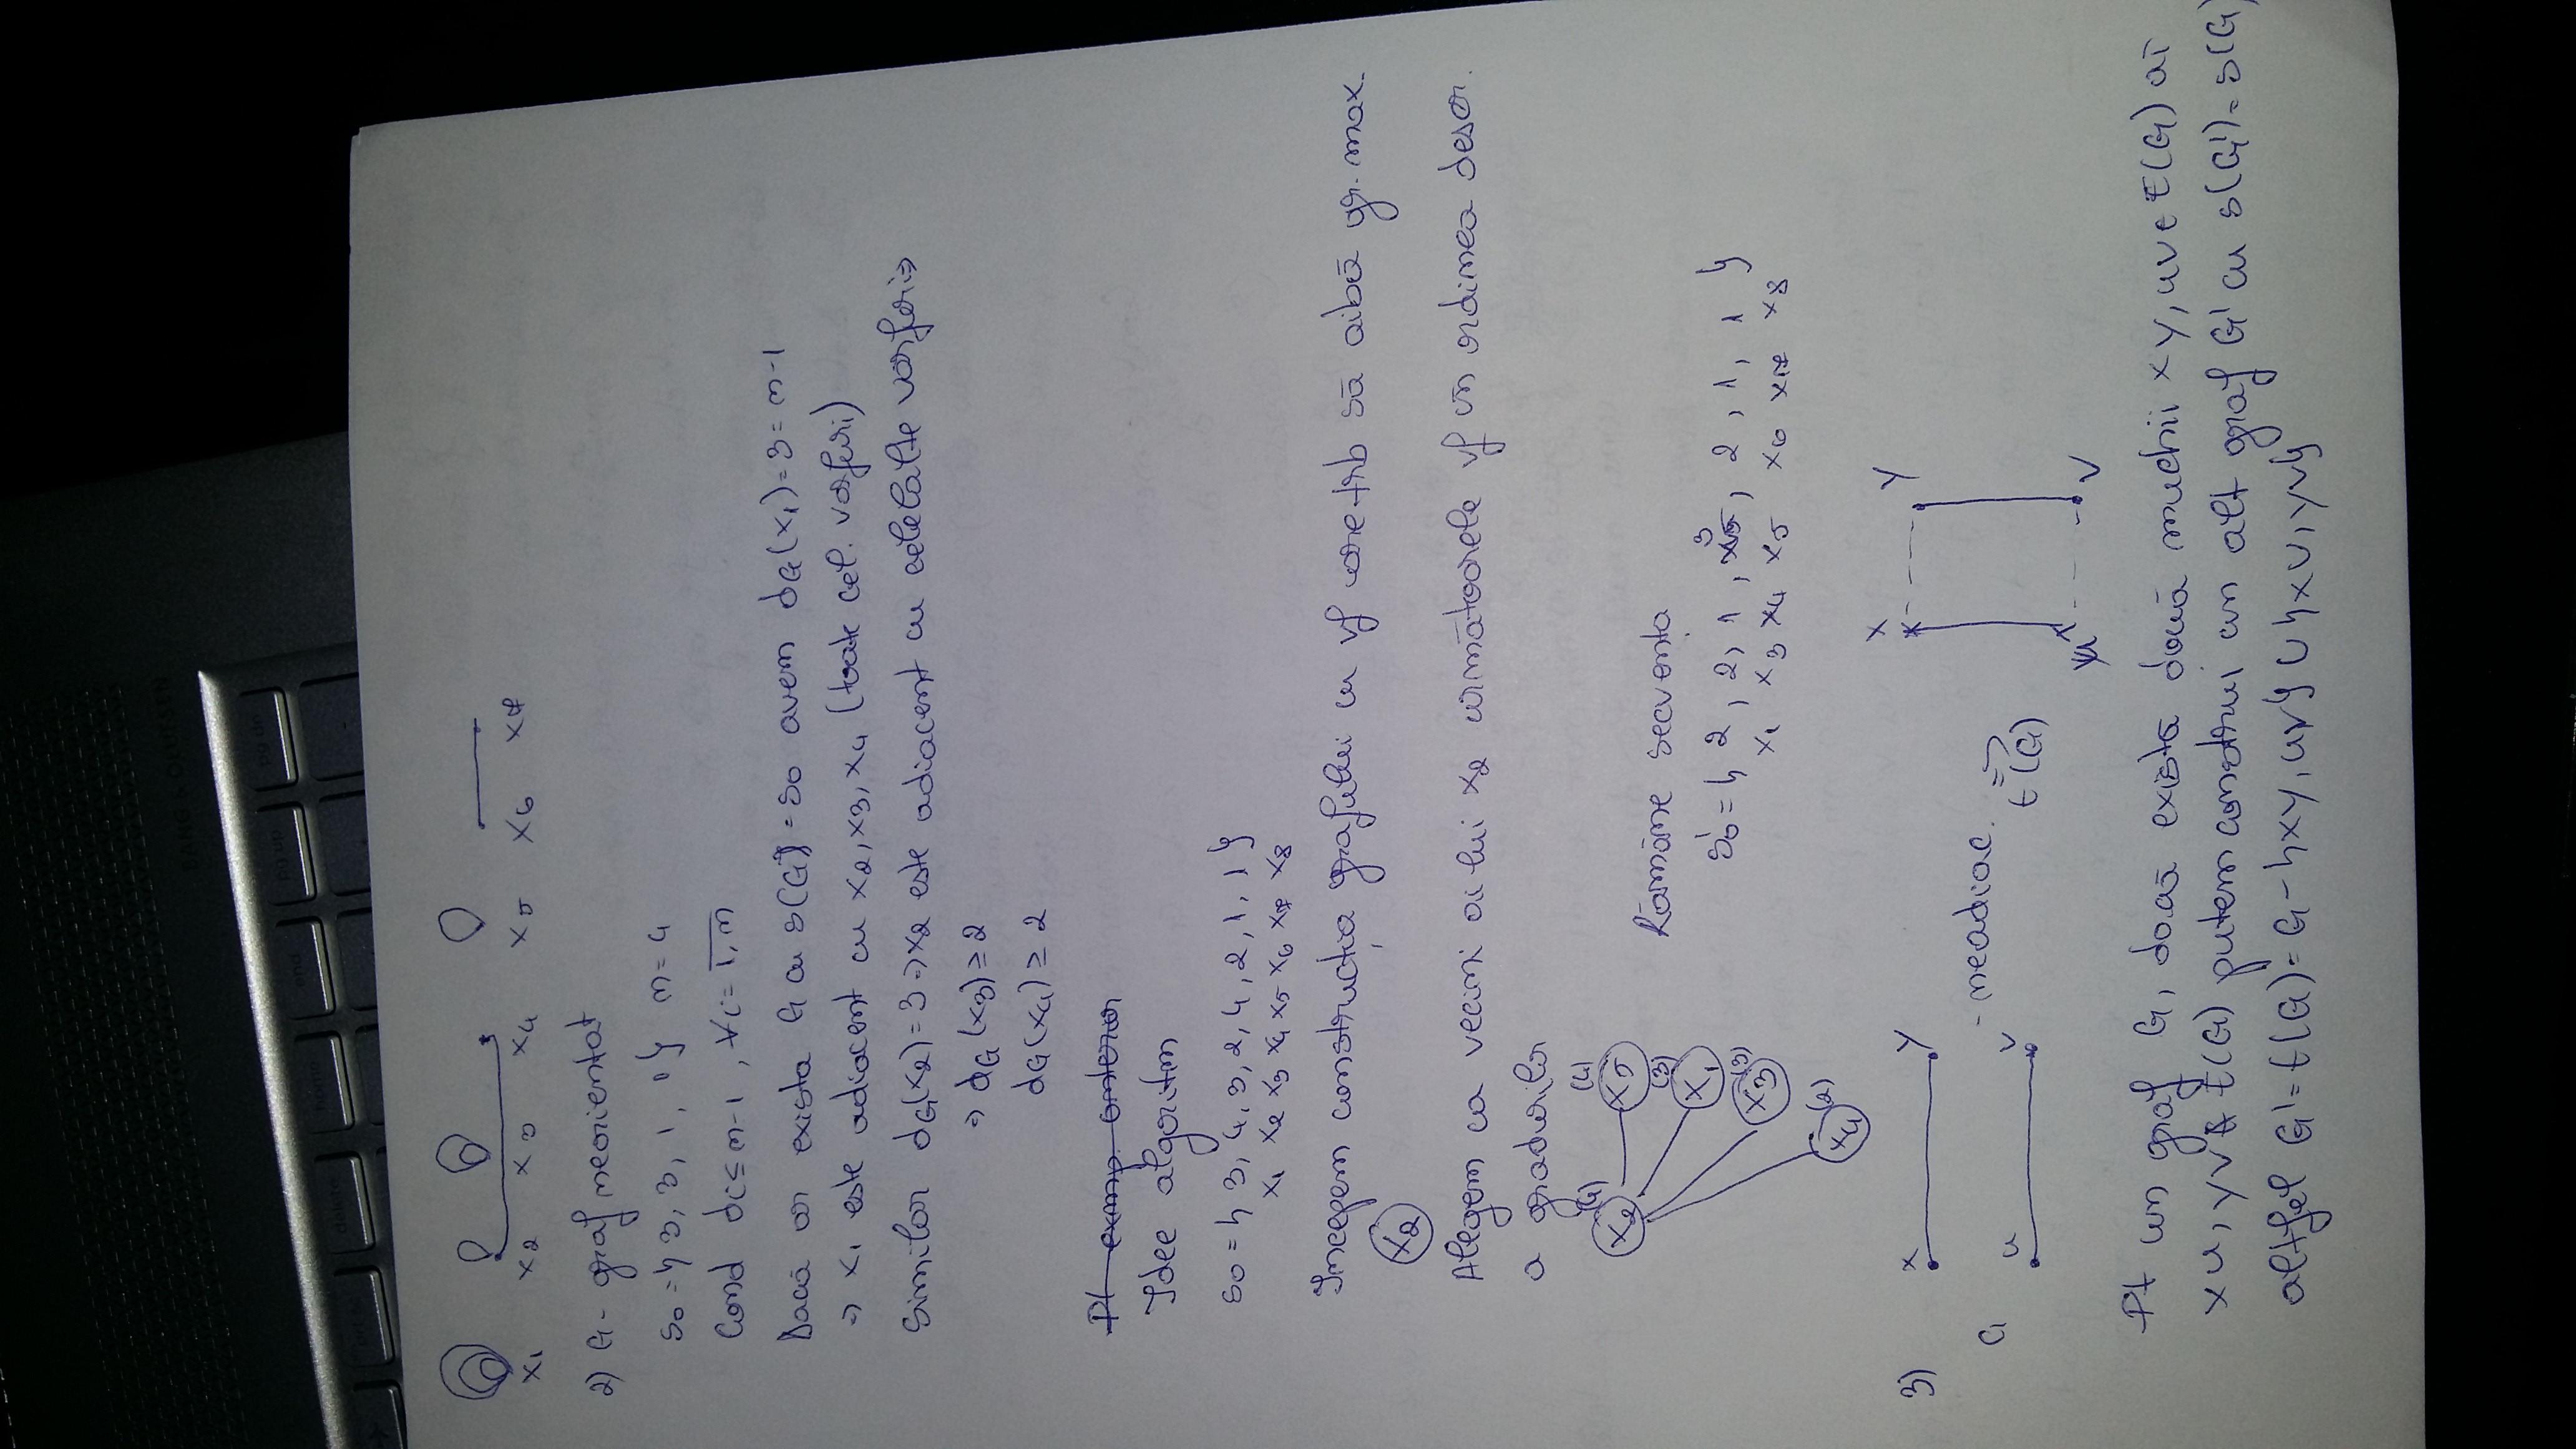 x₁ x₂ x₃ x₄ x₅ x₆ x₇
2) G - graf neorientat
s₀ = { 3, 3, 1, 1 } n = 4
Cond di ≤ n-1, ∀i = 1,n
Dacă ar exista G cu s(G) = s₀ avem dG(x₁) = 3 = n-1
⇒ x₁ este adiacent cu x₂, x₃, x₄ (toate cel. vârfuri)
Similar dG(x₂) = 3 ⇒ x₂ este adiacent cu celelalte vârfuri ⇒
⇒ dG(x₃) ≥ 2
dG(x₄) ≥ 2
Pt exemp. anterior
Idee algoritm
s₀ = { 3, 4, 3, 2, 4, 2, 1, 1 }
x₁ x₂ x₃ x₄ x₅ x₆ x₇ x₈
Începem construcția grafului cu vf care trb să aibă gr. max.
x₂
Alegem ca vecini ai lui x₂ următoarele vf în ordinea descr.
a gradurilor
x₂ (4) x₅ (4) x₁ (3) x₃ (3) x₄ (2)
Rămâne secvența
s₀' = { 2, 2, 1, 3, 2, 1, 1 }
x₁ x₃ x₄ x₅ x₆ x₇ x₈
3)
x y x y
G - neadiac. t(G)
u v u v
Pt un graf G, dacă există două muchii xy, uv ∈ E(G) aî
xu, yv ∉ E(G) putem construi un alt graf G' cu s(G') = s(G)
altfel G' = t(G) = G - {xy, uv} ∪ {xu, yv}